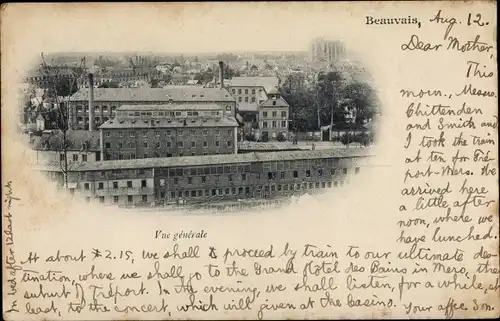 Beauvais, Aug. 12.
Dear Mother,
This
morn., Messrs.
Chittenden
and Smith and
I took the train
at ten for Tré-
port-Mers. We
arrived here
a little after
noon, where we
have lunched.
Vue générale
At about 2.15, we shall proceed by train to our ultimate des-
tination, where we shall go to the Grand Hôtel des Bains in Mers, the
suburb of Tréport. In the evening, we shall listen, for a while, at
least, to the concert, which will given at the Casino. Your affec. Son
In bed after 12 last night